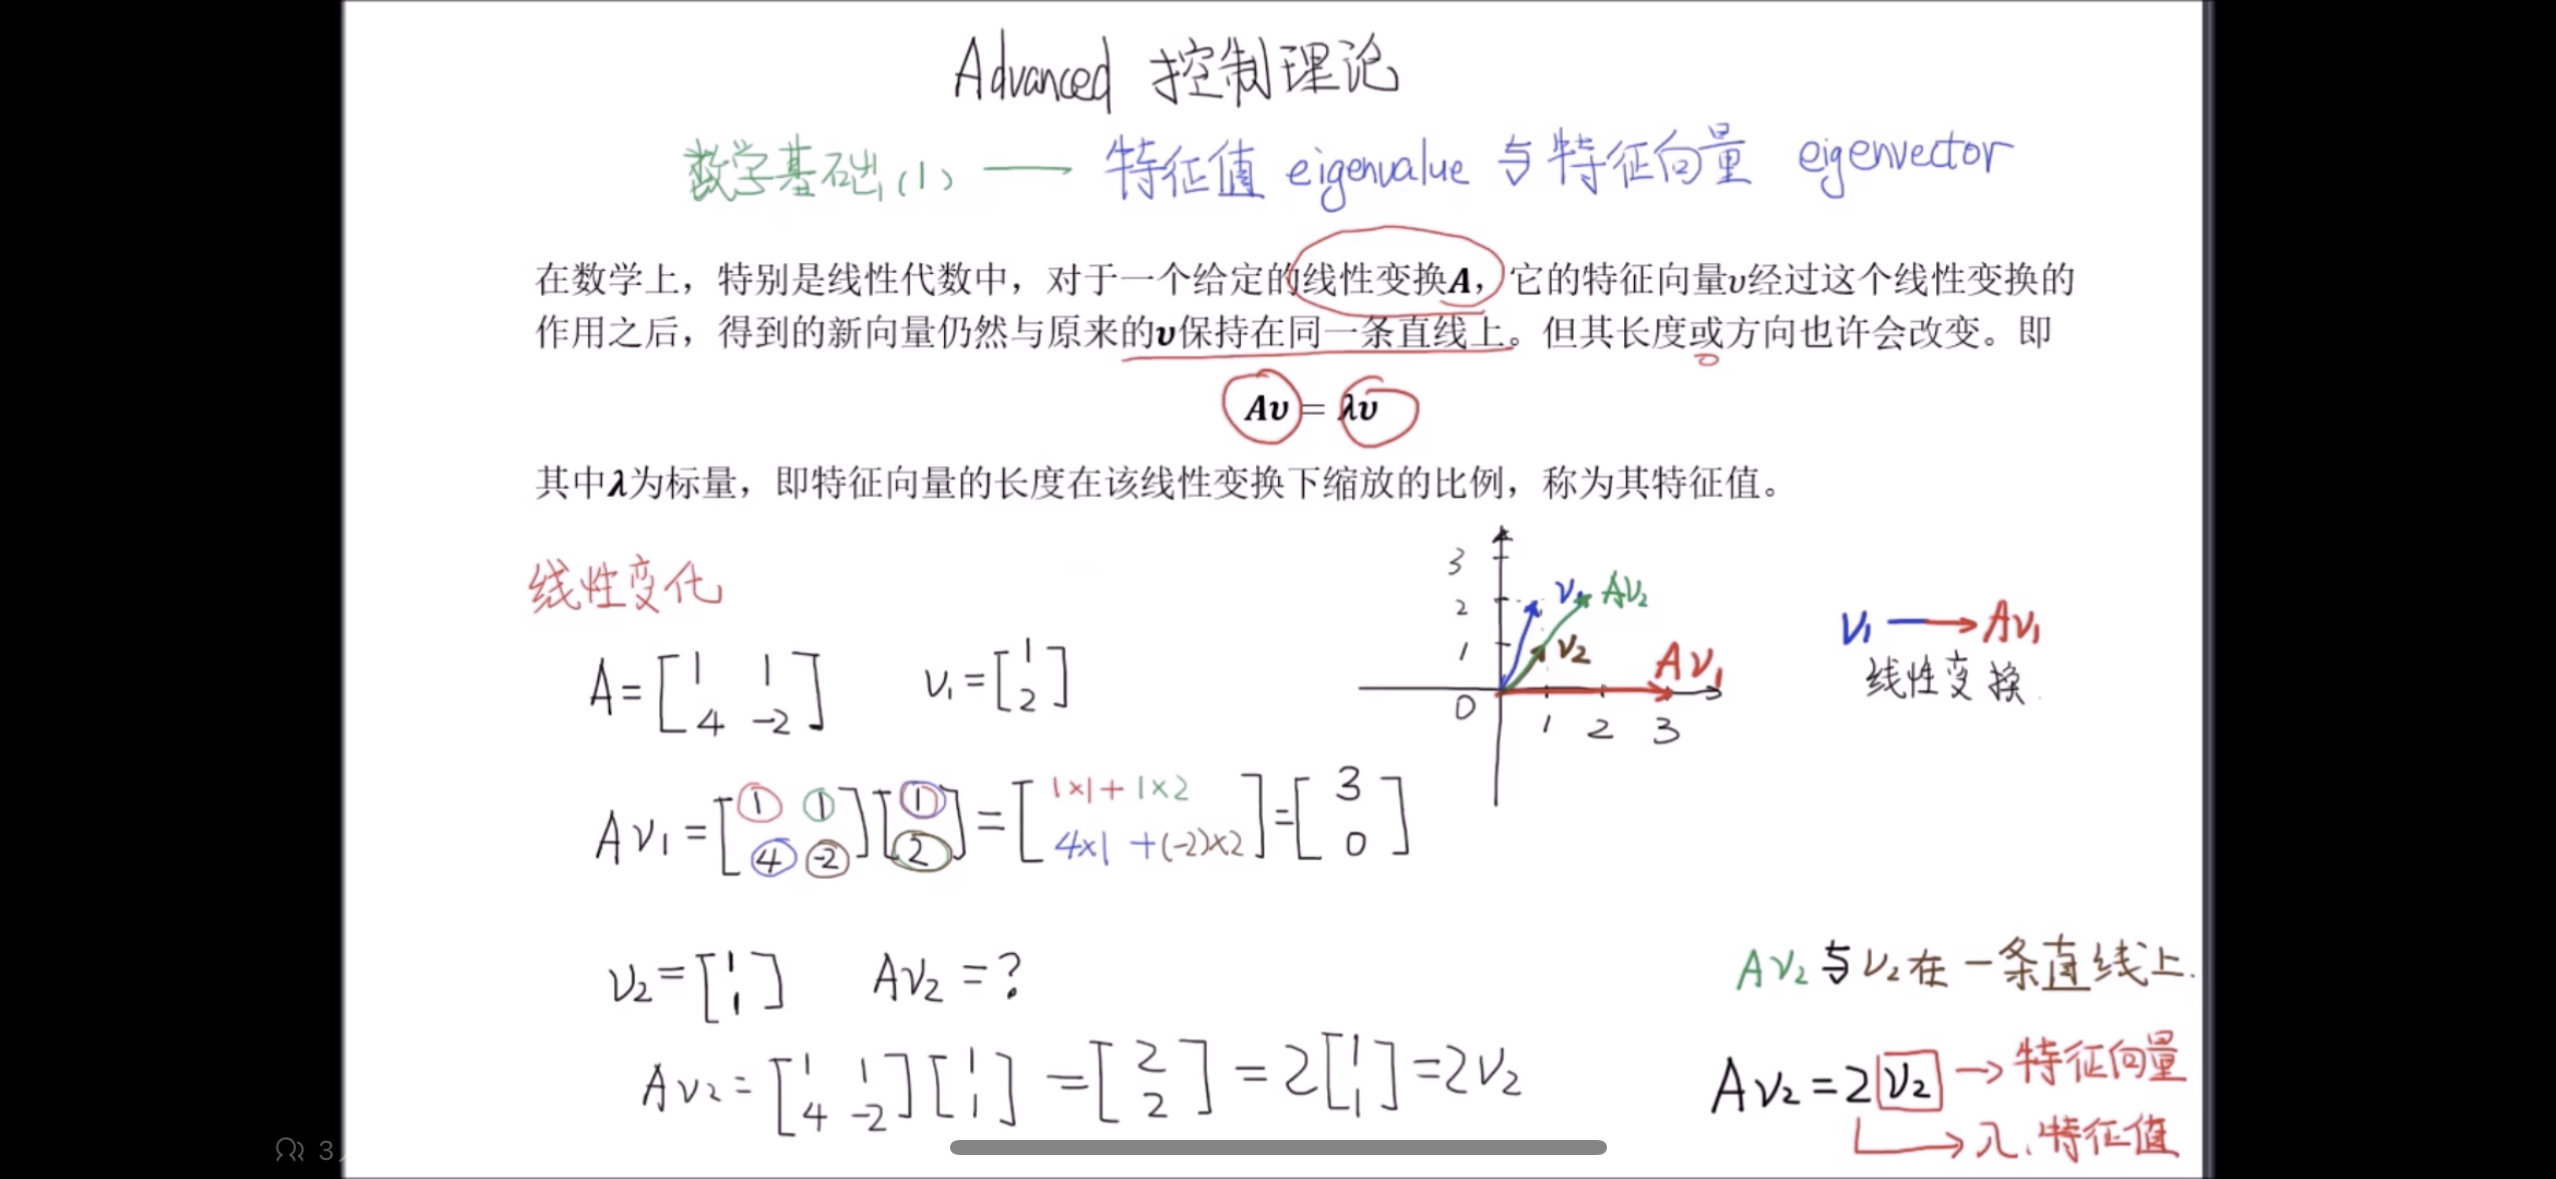 Advanced 控制理论
数学基础(1) — 特征值 eigenvalue 与特征向量 eigenvector
在数学上，特别是线性代数中，对于一个给定的线性变换A，它的特征向量υ经过这个线性变换的
作用之后，得到的新向量仍然与原来的υ保持在同一条直线上。但其长度或方向也许会改变。即
Aυ = λυ
其中λ为标量，即特征向量的长度在该线性变换下缩放的比例，称为其特征值。
线性变化
A = [1 1; 4 -2] ν1 = [1; 2]
3
2
1
0
1 2 3
ν1 Aν2
ν2
Aν1
ν1 → Aν1
线性变换
Aν1 = [1 1; 4 -2][1; 2] = [1×1+1×2; 4×1+(-2)×2] = [3; 0]
ν2 = [1; 1] Aν2 = ?
Aν2 = [1 1; 4 -2][1; 1] = [2; 2] = 2[1; 1] = 2ν2
Aν2 与 ν2 在一条直线上.
Aν2 = 2ν2 → 特征向量
→ λ, 特征值
3